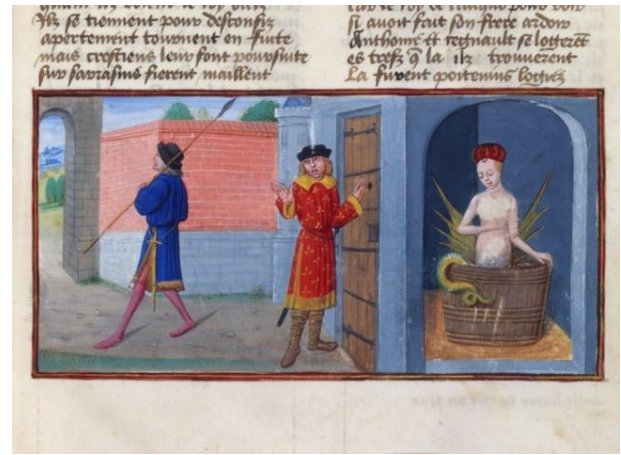 Ilz se tiennent pour desconfiz
apertement tournent en fuite
mais crestiens leur font poursuite
sur sarrasins fierent maillent
si avoit fait son frere
Anthoine et regnault se logerēt
es trefz q̄ la ilz trouverent
La furent poitevins logiez